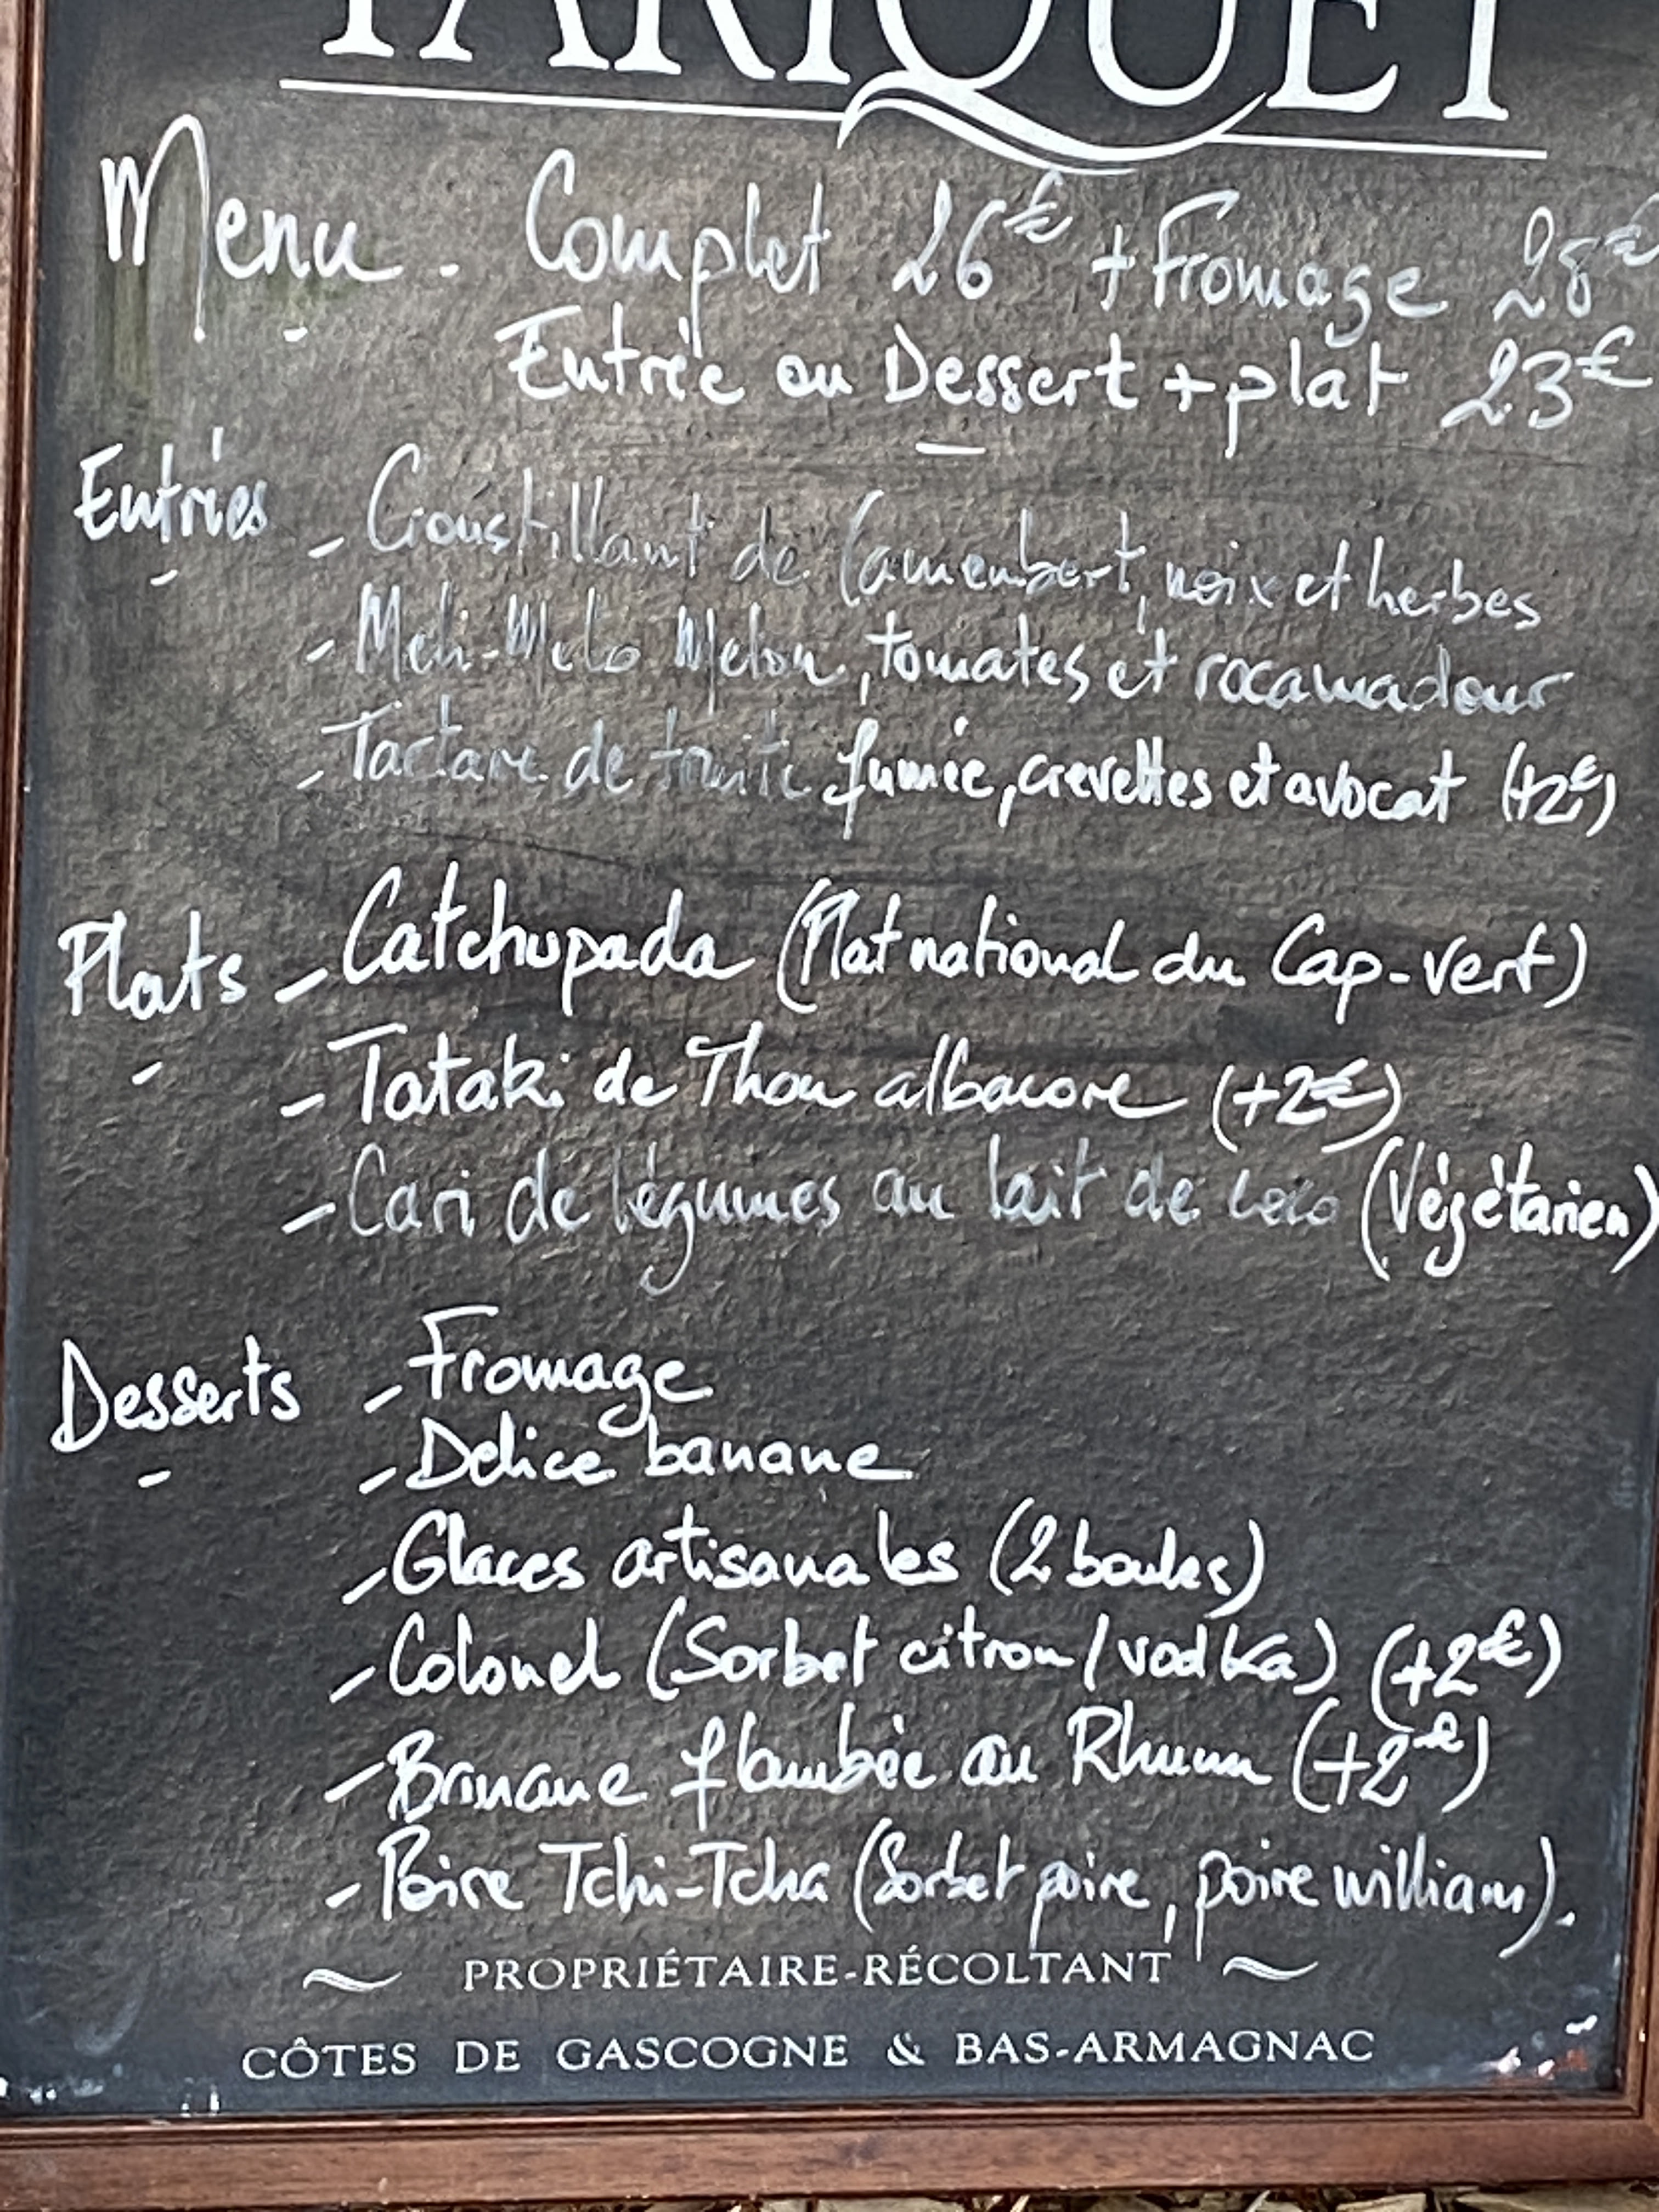 TARIQUET
Menu - Complet 26€ + Fromage 28€
Entrée ou Dessert + plat 23€
Entrées - Croustillant de Camembert, noix et herbes
- Meli-Melo Melon, tomates et rocamadour
- Tartare de truite fumée, crevettes et avocat (+2€)
Plats - Catchupada (Plat national du Cap-vert)
- Tataki de Thon albacore (+2€)
- Cari de légumes au lait de coco (Végétarien)
Desserts - Fromage
- Delice banane
- Glaces artisanales (2 boules)
- Colonel (Sorbet citron / vodka) (+2€)
- Banane flambée au Rhum (+2€)
- Poire Tchi-Tcha (Sorbet poire, poire william).
~ PROPRIÉTAIRE-RÉCOLTANT ~
CÔTES DE GASCOGNE & BAS-ARMAGNAC